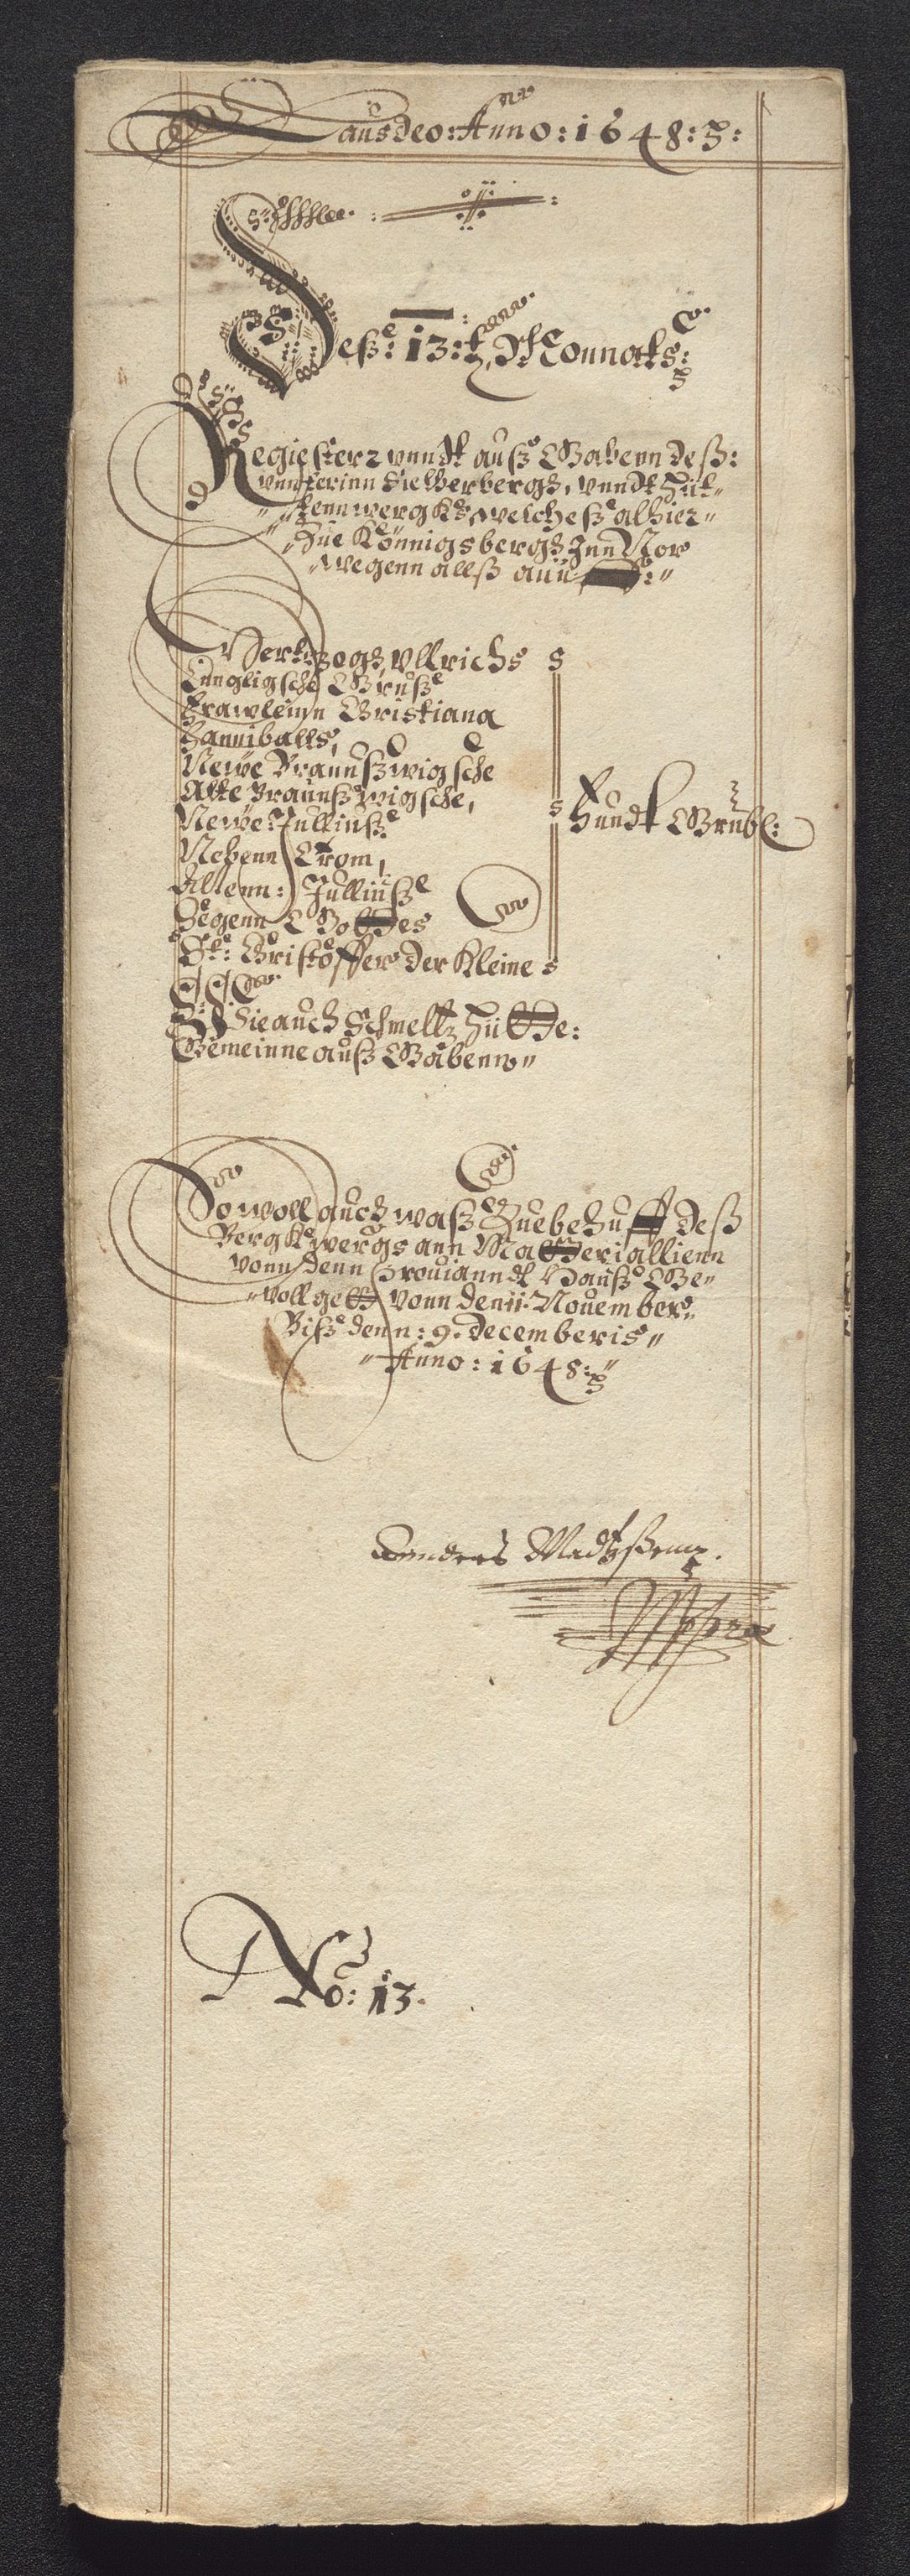 Laus deo: Anno: 1648: 
Deß: 13: Monnats:
Regiesterr vnndt auß Gabenn deß:
vnnsterinn Sielberbergs, vnndt Hüt„
„tennwergks, welcheß alhier„
„Zue Könnigsbergs Inn Nor
„wegenn allß auff:„
Hertzogs Vllrichs
Lungligsche Gruße
Frawleinn Cristiana
Hanniballs,
Newe Braunßwigsche
Alte Braunßwigsche,
Newe: Julliuß
Nebenn Trom,
Altenn: Julliuß
Segenn Gottes
St: Cristoffer der Kleine
vnndt Grube:
Wie auch Schmeltz Hütte:
Gemeinne auß Gabenn„
So woll auch waß Zuebehuff deß
Bergkwergs ann Matteriallienn
vonn denn Prouianndt Hauß Ge„
„vollgett vonn den 11. Nouember„
Biß denn: 9. decemberis„
„Anno: 1648:„
Anders Madtzßenn.
Mppria
No: 13.